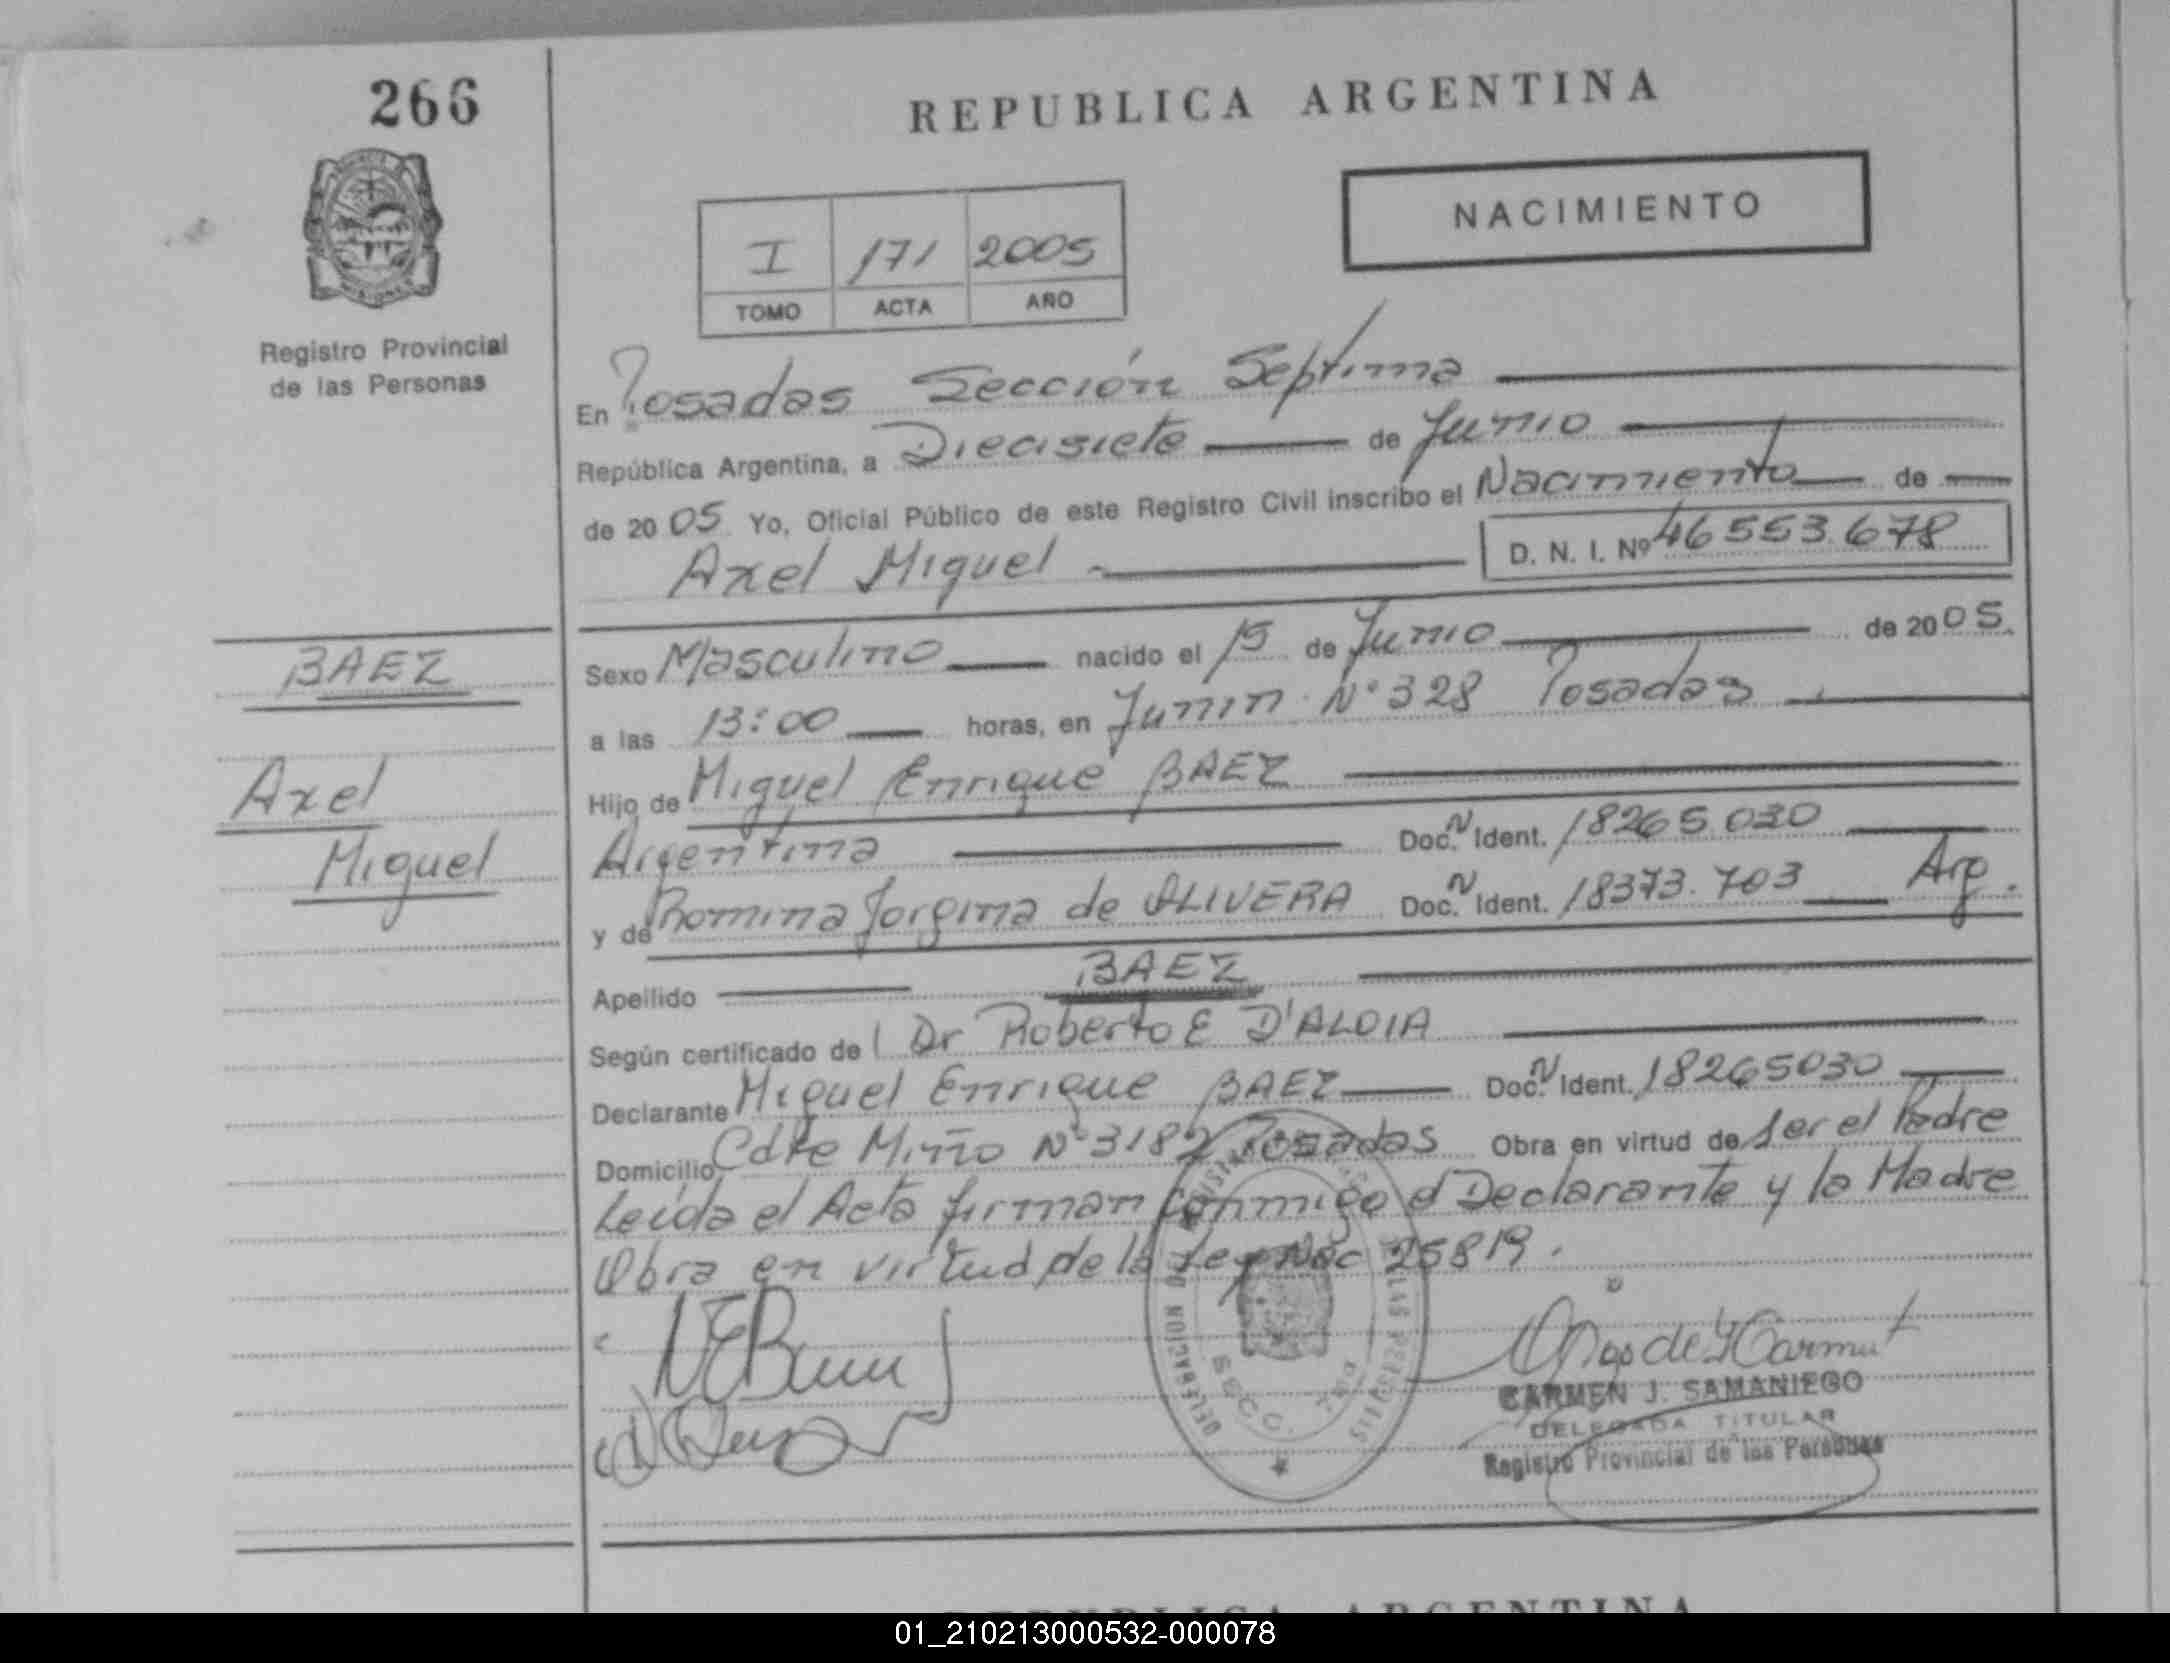 266
REPUBLICA ARGENTINA
NACIMIENTO
I 171 2005
TOMO ACTA AÑO
Registro Provincial
de las Personas
En Posadas Sección Septima
República Argentina, a Diecisiete de Junio
de 2005 Yo, Oficial Público de este Registro Civil inscribo el Nacimiento de
Axel Miguel D. N. I. Nº 46553.678
BAEZ
Sexo Masculino nacido el 15 de Junio de 2005.
a las 13:00 horas, en Junin Nº 328 Posadas
Axel
Miguel
Hijo de Miguel Enrique BAEZ
Argentina Doc. N Ident. 18265.030
y de Romina Jorgina de OLIVERA Doc. N Ident. 18373.703 Arg.
Apellido BAEZ
Según certificado de Dr Roberto E D'ALOIA
Declarante Miguel Enrique BAEZ Doc. N Ident. 18265030
Domicilio Cdte Miño Nº 3182 Posadas Obra en virtud de ser el Padre
Leida el Acta firman conmigo el Declarante y la Madre
Obra en virtud de la Ley Nac 25819.
CARMEN J. SAMANIEGO
DELEGADA TITULAR
Registro Provincial de las Personas
REPUBLICA ARGENTINA
01_210213000532-000078